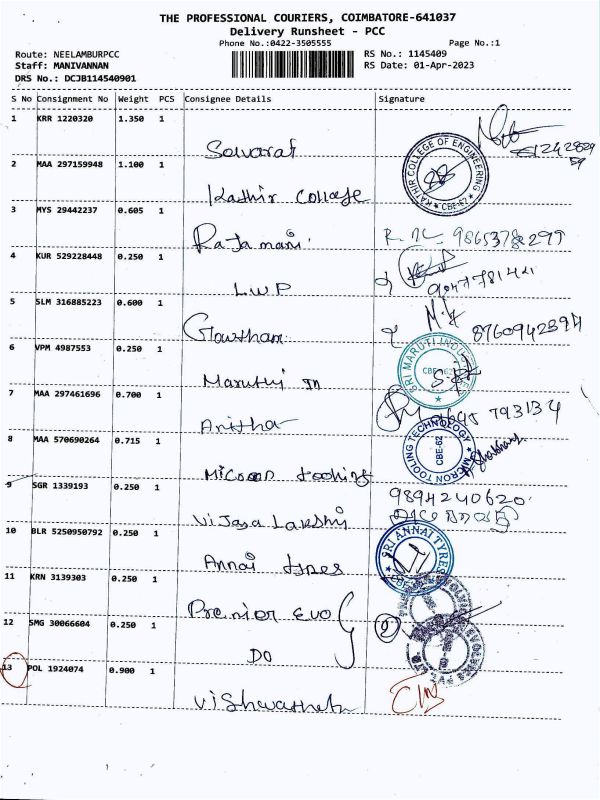 THE PROFESSIONAL COURIERS, COIMBATORE-641037
Delivery Runsheet - PCC
Phone No.:0422-3505555 Page No.:1
Route: NEELAMBURPCC RS No.: 1145409
Staff: MANIVANNAN RS Date: 01-Apr-2023
DRS No.: DCJB114540901
S No Consignment No Weight PCS Consignee Details Signature
1 KRR 1220320 1.350 1
Selvaraj
2 MAA 297159948 1.100 1
Kathir College KATHIR COLLEGE OF ENGINEERING * CBE-62 *
3 MYS 29442237 0.605 1
Rajamani 9865378299
4 KUR 529228448 0.250 1
L.W.P
5 SLM 316885223 0.600 1
Gowtham 8760942394
6 VPM 4987553 0.250 1
Maruthi In SRI MARUTI INDU CBE-62
7 MAA 297461696 0.700 1
Anitha 793134
8 MAA 570690264 0.715 1
Micron tooling MICRON TOOLING TECHNOLOGY CBE-62
9 SGR 1339193 0.250 1 9894240620
Vijaya Lakshmi
10 BLR 5250950792 0.250 1
Annai tyres SRI ANNAI TYRES
11 KRN 3139303 0.250 1
Premier Evo
12 SMG 30066604 0.250 1
DO
13 POL 1924074 0.900 1